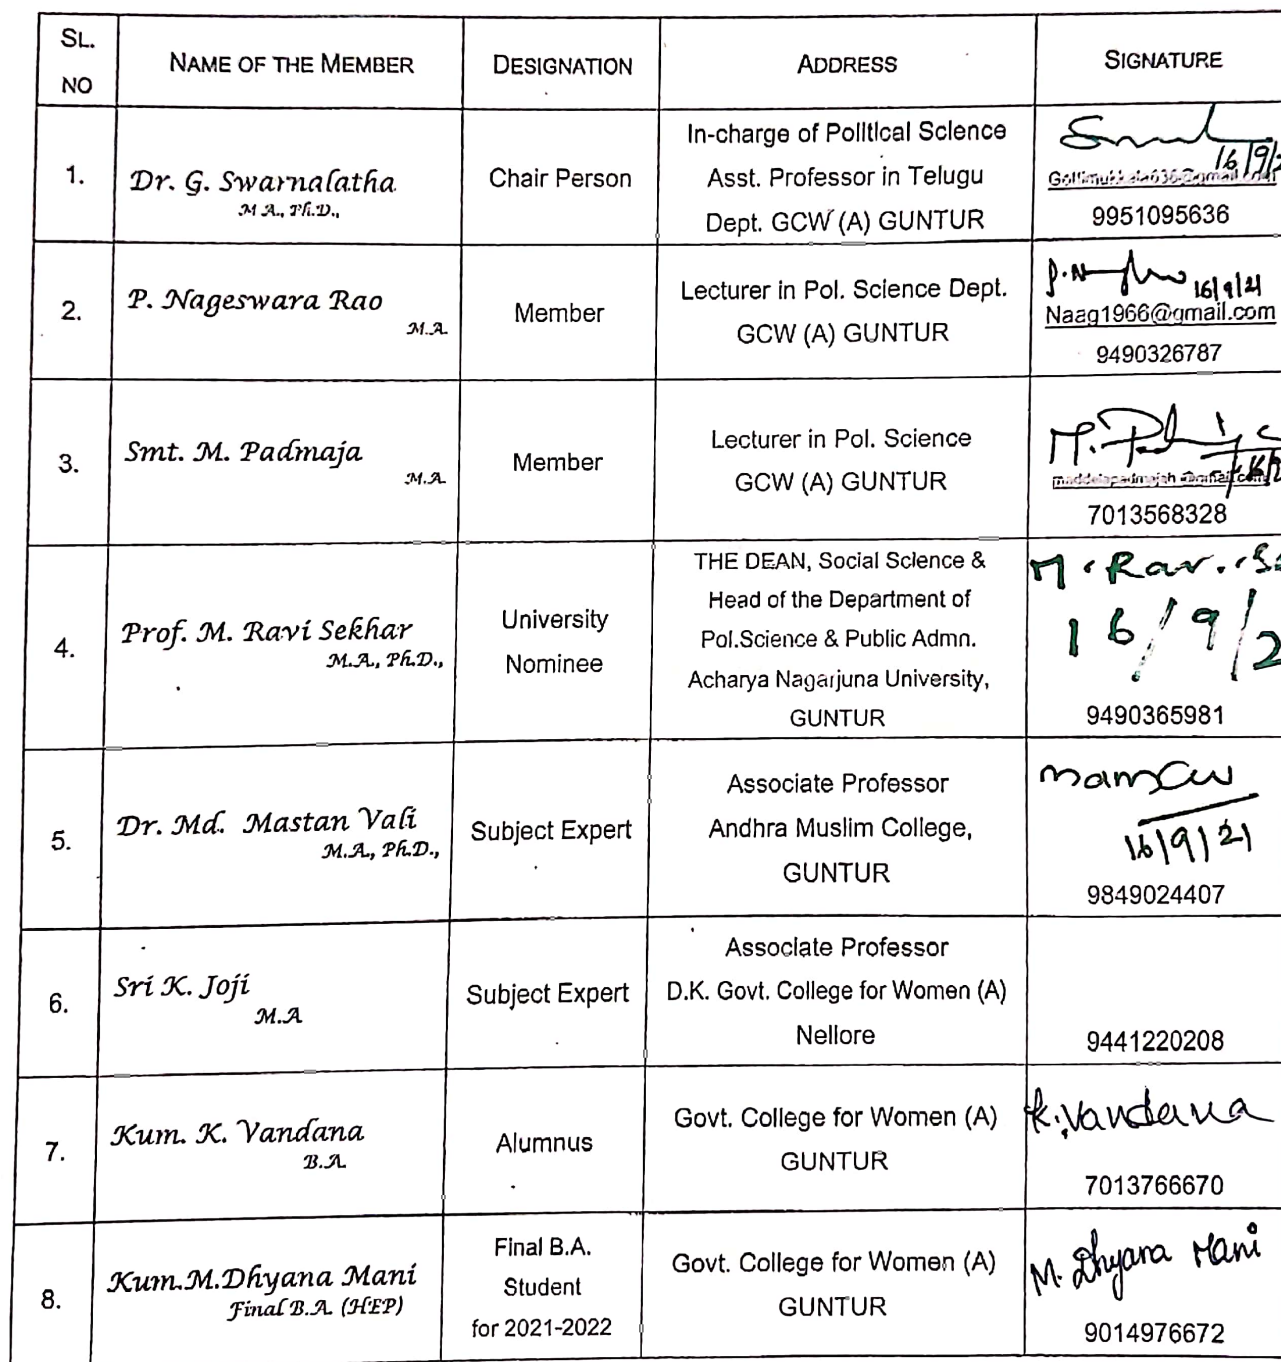 SL.
NO
NAME OF THE MEMBER
DESIGNATION
ADDRESS
SIGNATURE
1.
Dr. G. Swarnalatha
M.A., Ph.D.,
Chair Person
In-charge of Political Science
Asst. Professor in Telugu
Dept. GCW (A) GUNTUR
16/9/2
9951095636
2.
P. Nageswara Rao
M.A.
Member
Lecturer in Pol. Science Dept.
GCW (A) GUNTUR
16/9/21
Naag1966@gmail.com
9490326787
3.
Smt. M. Padmaja
M.A.
Member
Lecturer in Pol. Science
GCW (A) GUNTUR
7013568328
4.
Prof. M. Ravi Sekhar
M.A., Ph.D.,
University
Nominee
THE DEAN, Social Science &
Head of the Department of
Pol.Science & Public Admn.
Acharya Nagarjuna University,
GUNTUR
16/9/2
9490365981
5.
Dr. Md. Mastan Vali
M.A., Ph.D.,
Subject Expert
Associate Professor
Andhra Muslim College,
GUNTUR
16/9/21
9849024407
6.
Sri K. Joji
M.A
Subject Expert
Associate Professor
D.K. Govt. College for Women (A)
Nellore
9441220208
7.
Kum. K. Vandana
B.A.
Alumnus
Govt. College for Women (A)
GUNTUR
K. Vandana
7013766670
8.
Kum.M.Dhyana Mani
Final B.A. (HEP)
Final B.A.
Student
for 2021-2022
Govt. College for Women (A)
GUNTUR
M. Dhyana Mani
9014976672